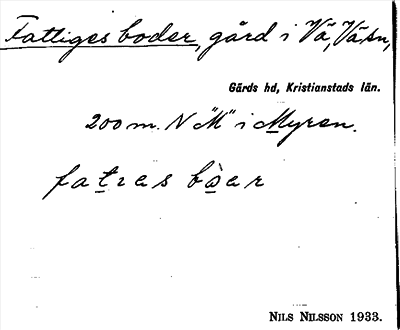 Fattiges boder, gård i Vä, Vä sn,
Gärds hd, Kristianstads län.
200 m. N "M" i Myren.
fatras bòar
NILS NILSSON 1933.